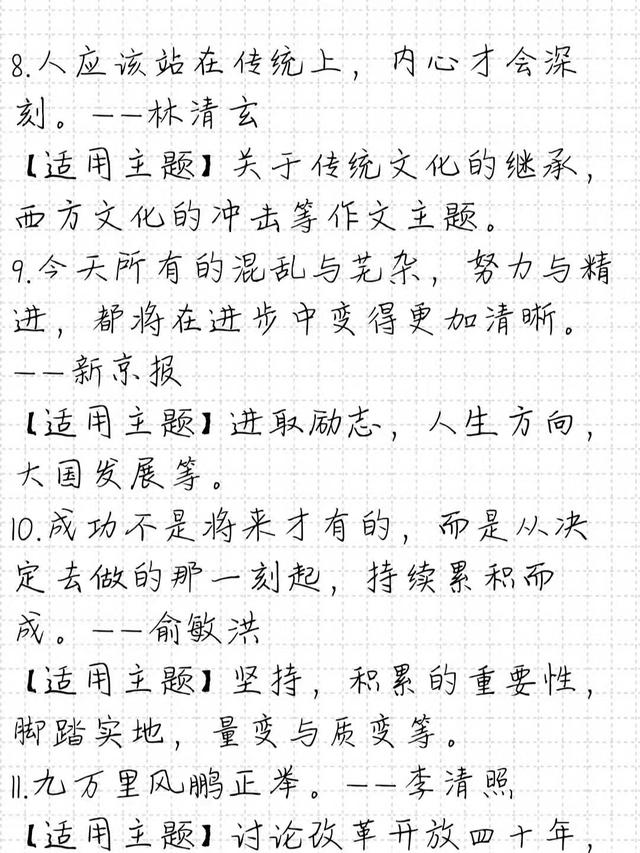 8.人应该站在传统上，内心才会深
刻。——林清玄
【适用主题】关于传统文化的继承，
西方文化的冲击等作文主题。
9.今天所有的混乱与芜杂，努力与精
进，都将在进步中变得更加清晰。
——新京报
【适用主题】进取励志，人生方向，
大国发展等。
10.成功不是将来才有的，而是从决
定去做的那一刻起，持续累积而
成。——俞敏洪
【适用主题】坚持，积累的重要性，
脚踏实地，量变与质变等。
11.九万里风鹏正举。——李清照
【适用主题】讨论改革开放四十年，